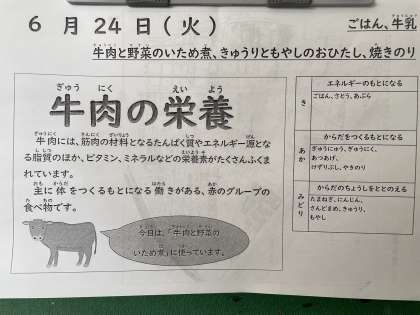 6 月 24 日 (火)
ごはん、牛乳
牛肉と野菜のいため煮、きゅうりともやしのおひたし、焼きのり
牛肉の栄養
牛肉には、筋肉の材料となるたんぱく質やエネルギー源とな
る脂質のほか、ビタミン、ミネラルなどの栄養素がたくさんふくま
れています。
主に体をつくるもとになる働きがある、赤のグループの
食べ物です。
今日は、「牛肉と野菜の
いため煮」に使っています。
き
エネルギーのもとになる
ごはん、さとう、あぶら
あか
からだをつくるもとになる
ぎゅうにゅう、ぎゅうにく、
あつあげ、
けずりぶし、やきのり
みどり
からだのちょうしをととのえる
たまねぎ、にんじん、
さんどまめ、きゅうり、
もやし